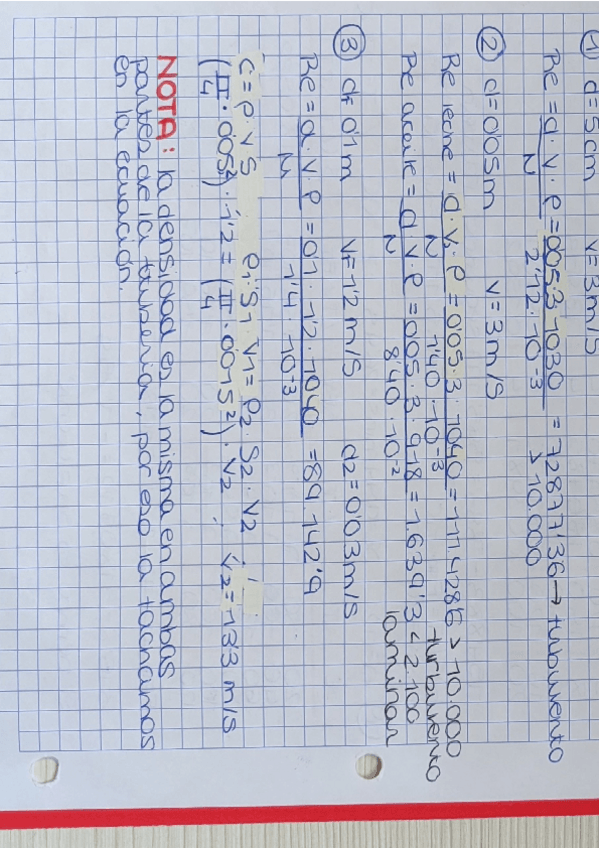 1) d = 5cm v = 3m/s
Re = d · v · ρ / μ = 0'05·3·1030 / 2'12·10⁻³ = 72877'36 → turbulento
> 10.000
② d = 0'05m v = 3m/s
Re leche = d · v · ρ / μ = 0'05·3·1040 / 1'40·10⁻³ = 111428'6 > 10.000 turbulento
Re aceite = d · v · ρ / μ = 0'05·3·918 / 8'40·10⁻² = 1.639'3 < 2.100 laminar
③ d = 0'1m v = 1'2m/s d2 = 0'03m/s
Re = d · v · ρ / μ = 0'1·1'2·1040 / 1'4 10⁻³ = 89.142'9
c = ρ v S ρ1·S1 v1 = ρ2·S2·v2
(π/4 · 0'05²) · 1'2 = (π/4 · 0'015²) · v2 ; v2 = 133 m/s
NOTA: la densidad es la misma en ambas
partes de la tubería, por eso la tachamos
en la ecuación.